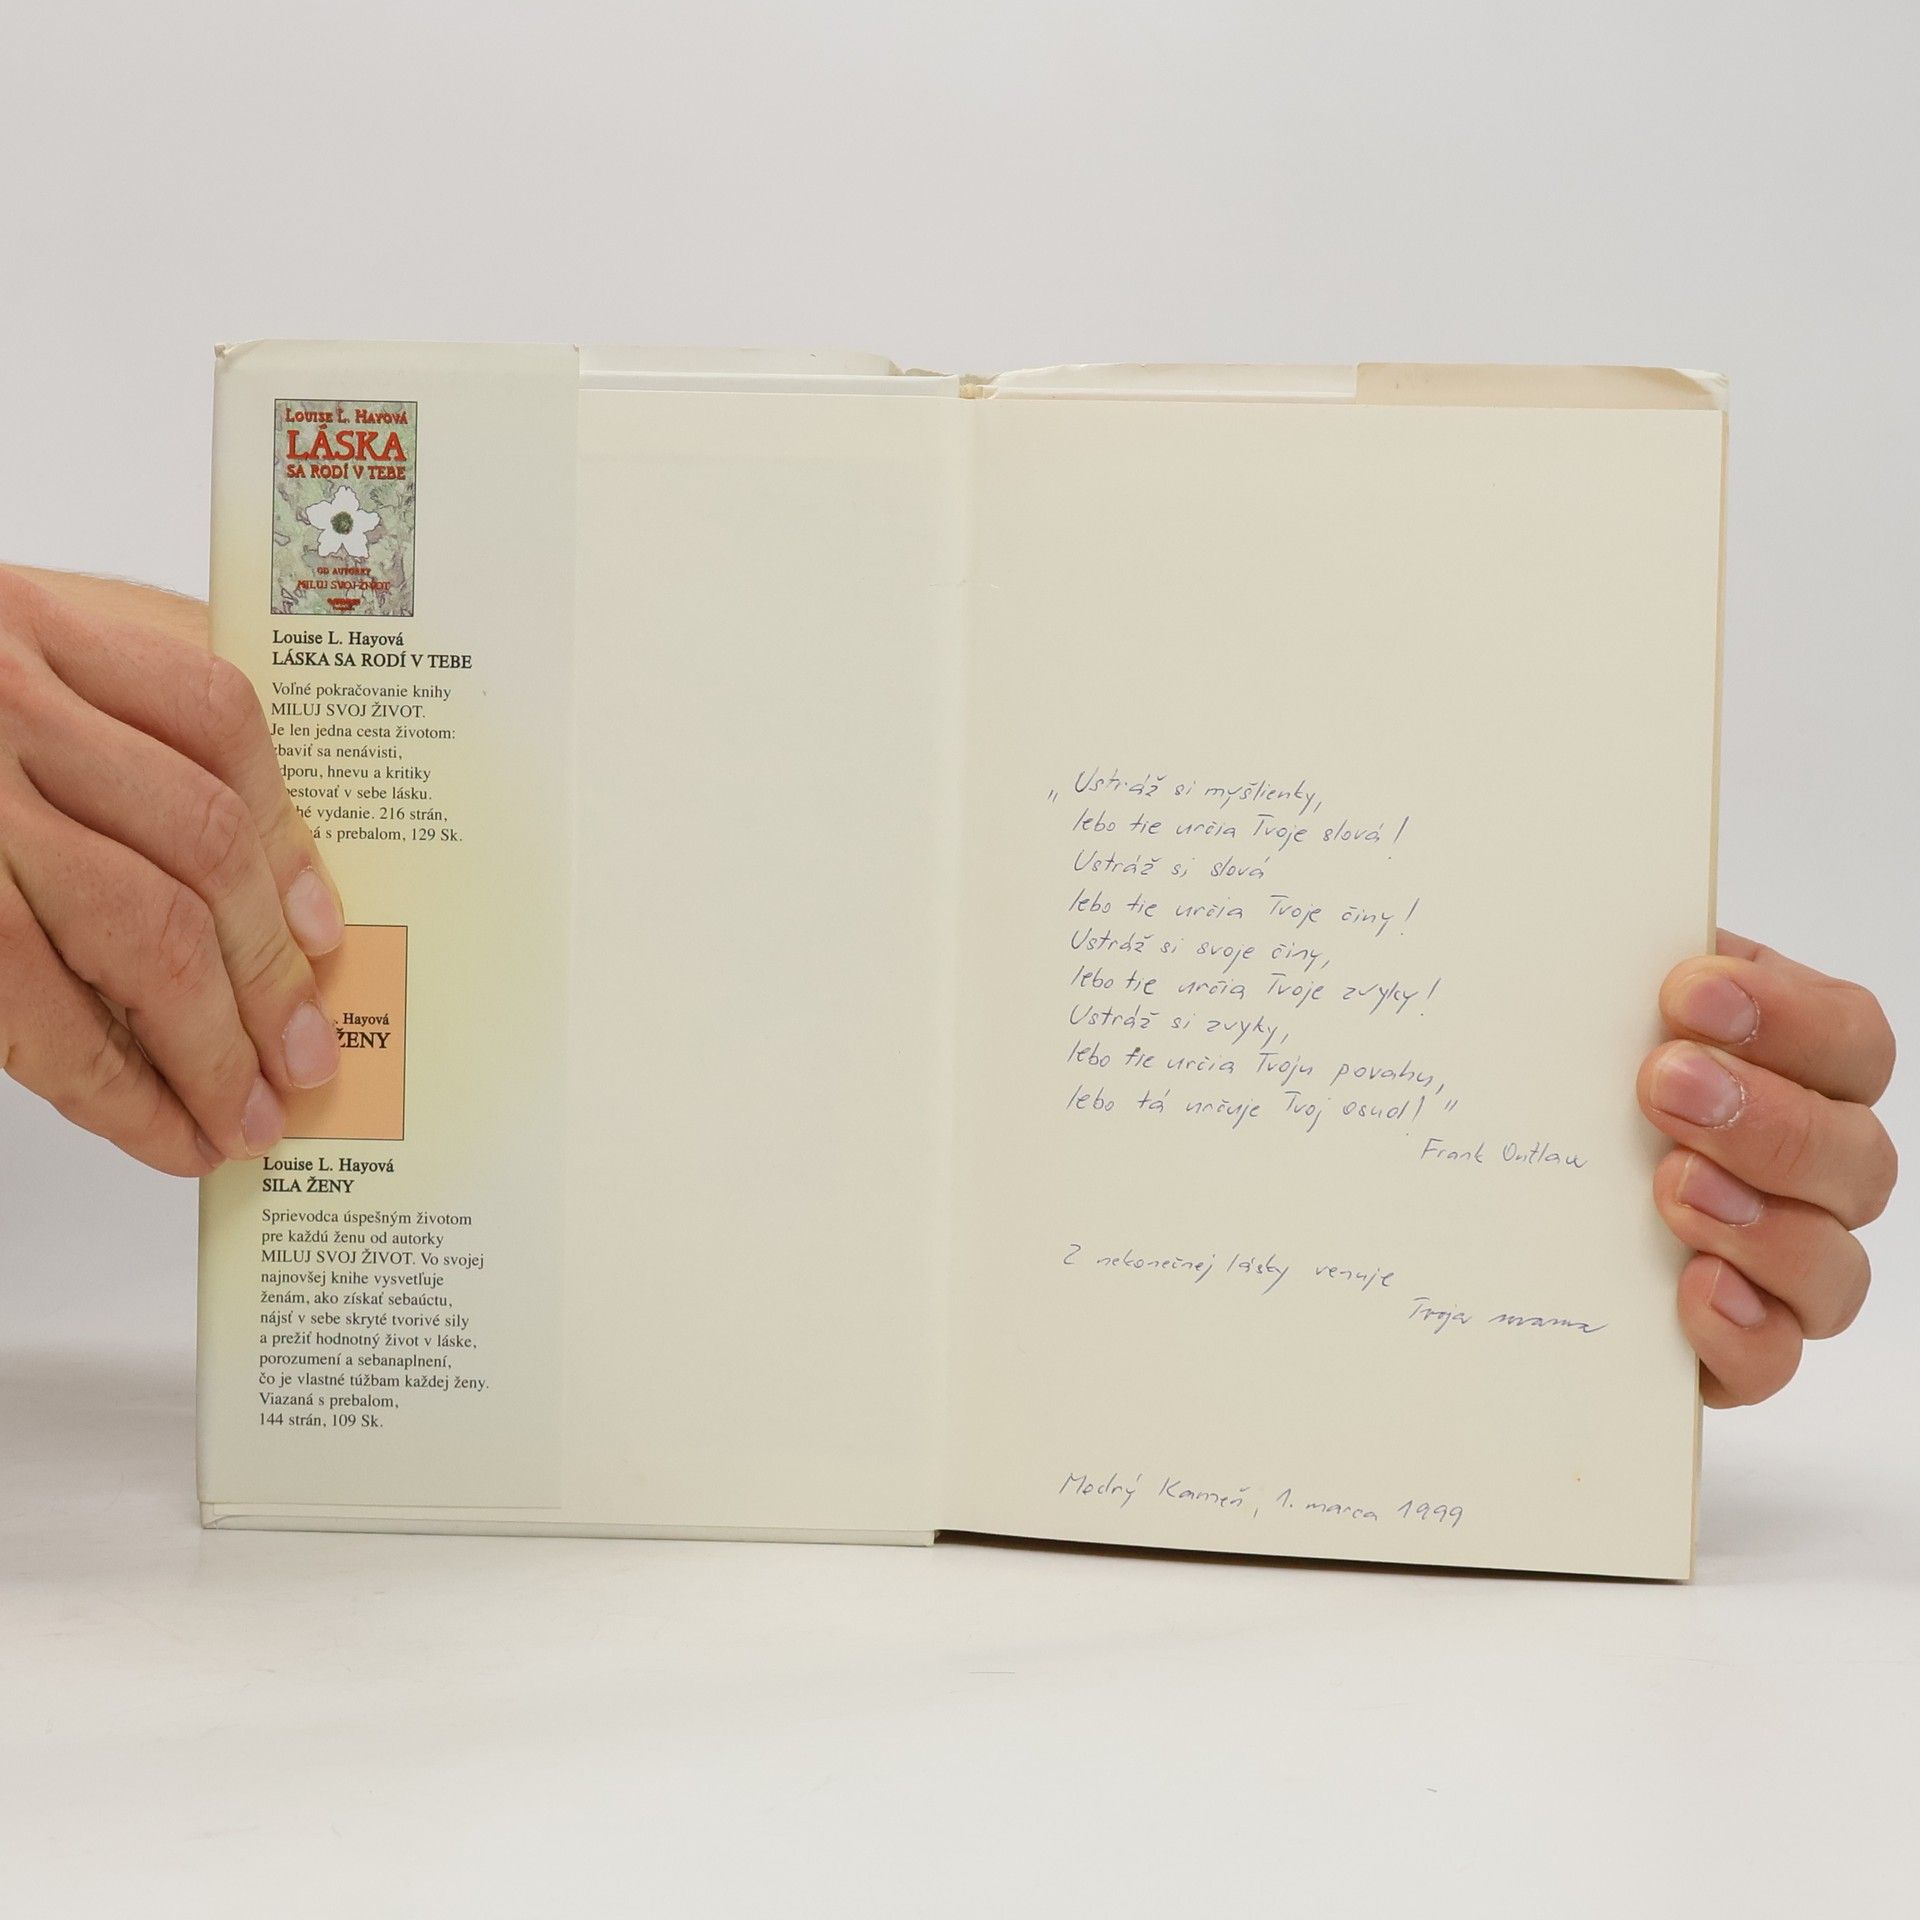 LOUISE L. HAYOVÁ
LÁSKA
SA RODÍ V TEBE
OD AUTORKY
MILUJ SVOJ ŽIVOT
Louise L. Hayová
LÁSKA SA RODÍ V TEBE
Voľné pokračovanie knihy
MILUJ SVOJ ŽIVOT.
Je len jedna cesta životom:
zbaviť sa nenávisti,
dporu, hnevu a kritiky
pestovať v sebe lásku.
hé vydanie. 216 strán,
á s prebalom, 129 Sk.
. Hayová
ŽENY
Louise L. Hayová
SILA ŽENY
Sprievodca úspešným životom
pre každú ženu od autorky
MILUJ SVOJ ŽIVOT. Vo svojej
najnovšej knihe vysvetľuje
ženám, ako získať sebaúctu,
nájsť v sebe skryté tvorivé sily
a prežiť hodnotný život v láske,
porozumení a sebanaplnení,
čo je vlastné túžbam každej ženy.
Viazaná s prebalom,
144 strán, 109 Sk.
„Ustráž si myšlienky,
lebo tie určia Tvoje slová!
Ustráž si slová
lebo tie určia Tvoje činy!
Ustráž si svoje činy,
lebo tie určia Tvoje zvyky!
Ustráž si zvyky,
lebo tie určia Tvoju povahu,
lebo tá určuje Tvoj osud!"
Frank Outlaw
Z nekonečnej lásky venuje
Tvoja mama
Modrý Kameň, 1. marca 1999